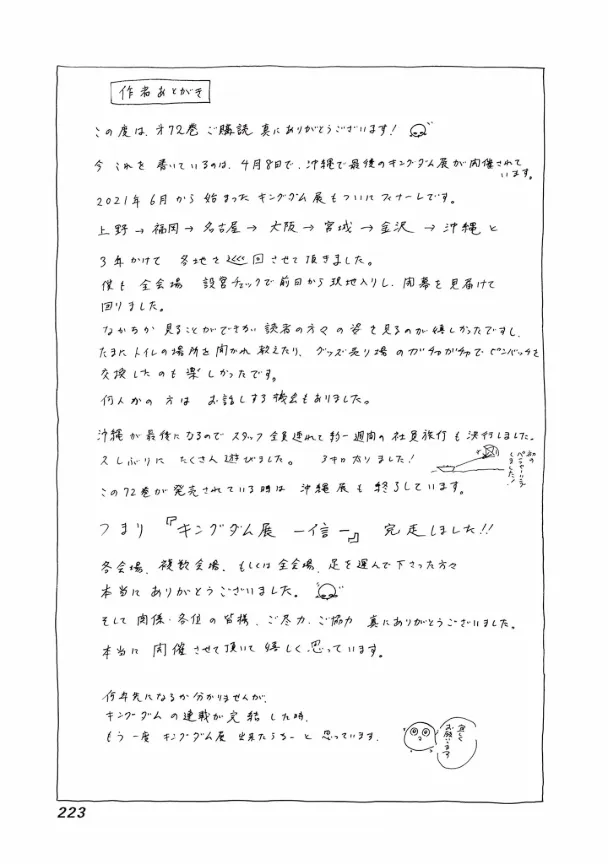 作者あとがき
この度は、才72巻 ご購読 真にありがとうございます!
今 これを 書いているのは、4月8日で、沖縄で最後のキングダム展が開催されて
います。
2021年6月から始まった キングダム展もついにフィナーレです。
上野→福岡→名古屋→大阪→宮城→金沢→沖縄と
3年かけて 各地を巡回させて頂きました。
僕も全会場 設営チェックで前日から現地入りし、開幕を見届けて
回りました。
なかなか見ることができない読者の方々の姿を見るのが嬉しかったですし、
たまにトイレの場所を聞かれ教えたり、グッズ売り場のガチャガチャでピンバッチを
交換したのも楽しかったです。
何人かの方は お話しする機会もありました。
沖縄が最後になるので スタッフ全員連れて約一週間の社員旅行も決行しました。
久しぶりに たくさん遊びました。 3キロ太りました!
初の
しました!
この72巻が発売されている時は 沖縄展も終了しています。
つまり『キングダム展 ー信ー』完走しました!!
各会場、複数会場、もしくは全会場、足を運んで下さった方々
本当にありがとうございました。
そして関係・各位の皆様、ご尽力、ご協力 真にありがとうございました。
本当に開催させて頂いて嬉しく思っています。
何年先になるか分かりませんが、
キングダムの連載が完結した時、
もう一度 キングダム展 出来たらなーと思っています。
宜しく
お願いします
223